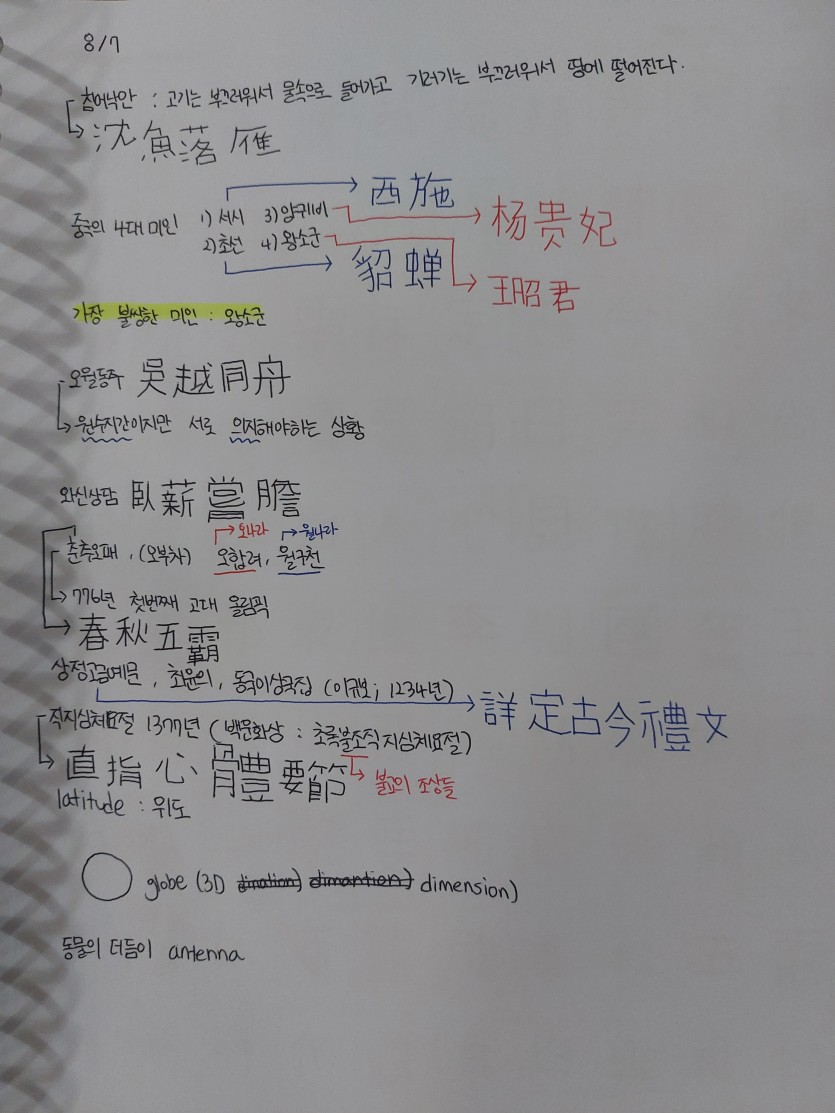 8/7
침어낙안 : 고기는 부끄러워서 물속으로 들어가고 기러기는 부끄러워서 땅에 떨어진다.
沈魚落雁
중국의 4대 미인 1) 서시 3) 양귀비
2) 초선 4) 왕소군
西施
杨贵妃
貂蝉
王昭君
가장 불쌍한 미인 : 왕소군
오월동주 吳越同舟
원수지간이지만 서로 의지해야하는 상황
와신상담 臥薪嘗膽
오나라 월나라
춘추오패, (오부차) 오합려, 월구천
776년 첫번째 고대 올림픽
春秋五霸
상정고금예문, 최윤의, 동국이상국집 (이규보; 1234년)
詳定古今禮文
직지심체요절 1377년 (백운화상 : 초록불조직지심체요절)
直指心體要節
불교의 조상들
latitude : 위도
globe (3D dination) dimantion) dimension)
동물의 더듬이 antenna